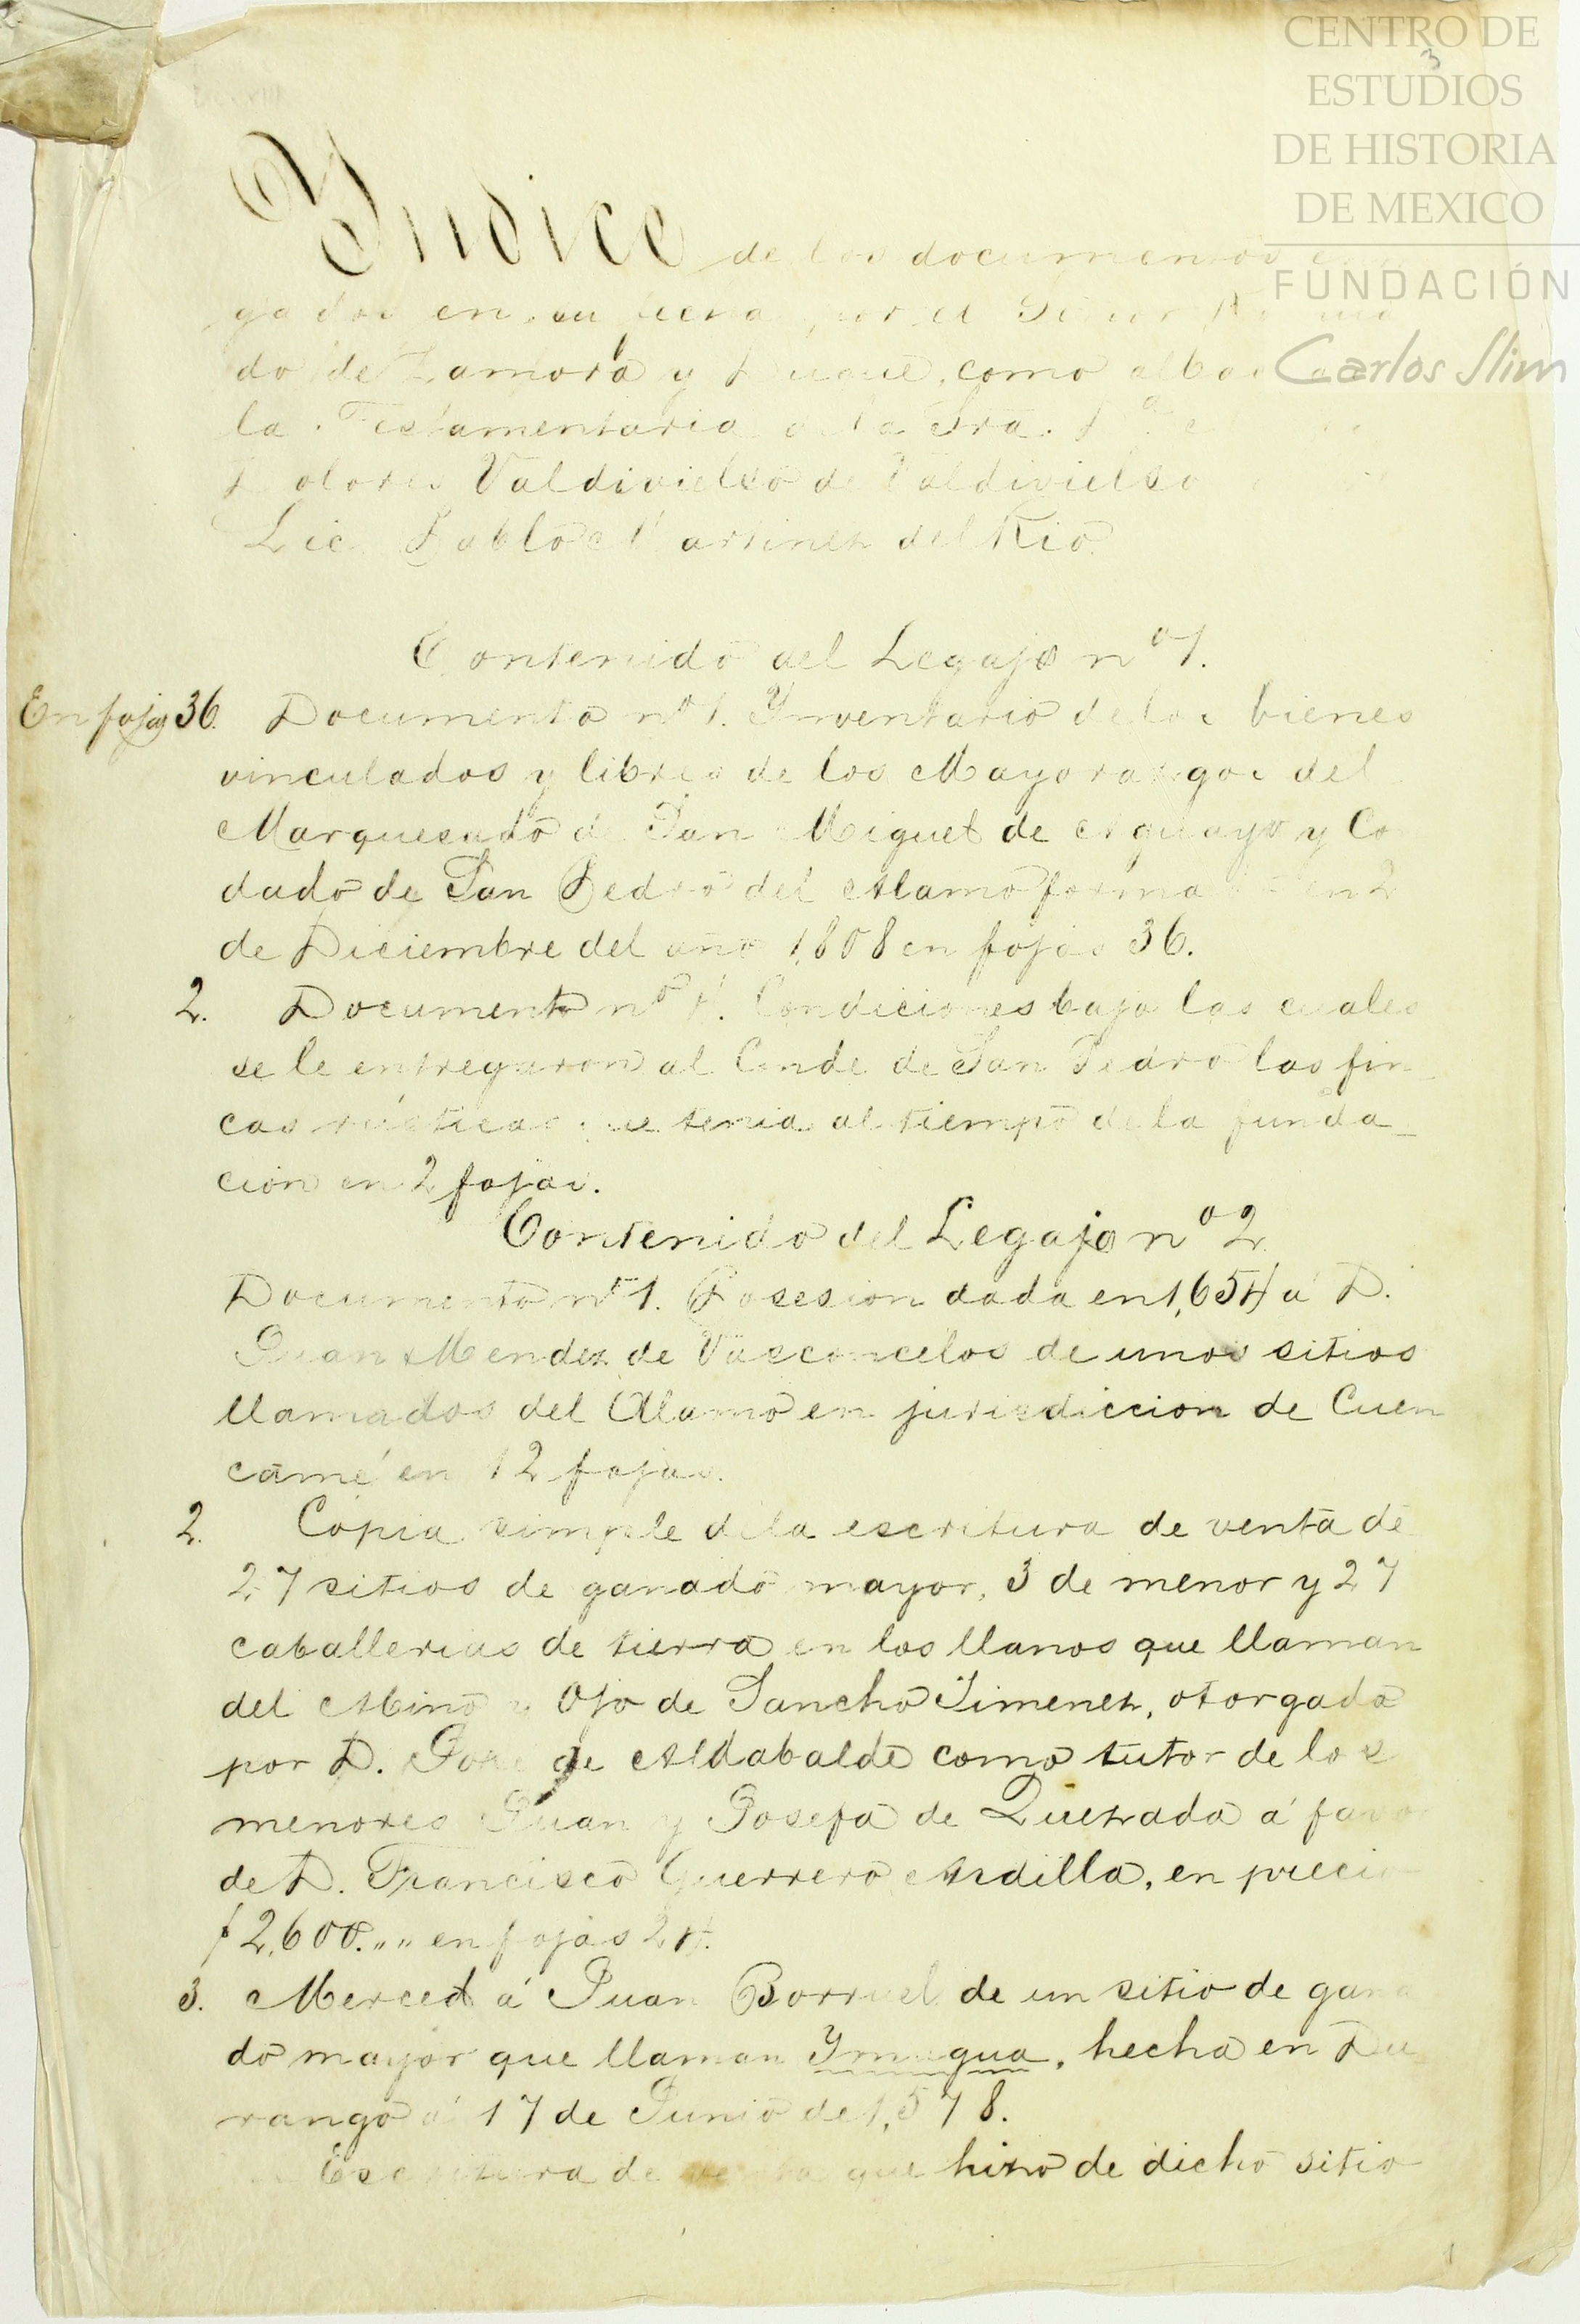 CENTRO DE
ESTUDIOS
DE HISTORIA
DE MEXICO
FUNDACIÓN
Carlos Slim
3
Yndice de los documentos
gados en su fecha por el Señor
do de Zamora y Duque, como
la Testamentaria de la Sra. D.ª
Dolores Valdivielso de Valdivielso
Lic. Pablo Martinez del Rio
Contenido del Legajo nº 1.
En fojas 36. Documento nº 1. Ynventario de los bienes
vinculados y libres de los Mayorazgos del
Marquesado de San Miguel de Aguayo y Co
dado de San Pedro del Alamo forma en 2
de Diciembre del año 1,808 en fojas 36.
2. Documento nº Condiciones bajo las cuales
se le entregaron al Conde de San Pedro las fin
cas rusticas que tenia al tiempo de la funda_
cion en 2 fojas.
Contenido del Legajo nº 2
Documento nº 1. Posesion dada en 1,654 á D.
Juan Mendez de Vasconcelos de unos sitios
llamados del Alamo en jurisdiccion de Cuen
camé en 12 fojas.
2. Copia simple de la escritura de venta de
27 sitios de ganado mayor, 3 de menor y 27
caballerias de tierra en los llanos que llaman
del y Ojo de Sancho Jimenez, otorgada
por D. José de Aldabalde como tutor de los
menores Juan y Josefa de Quezada á favor
de D. Francisco Guerrero Ardilla, en precio
$ 2,600.,, ,, en fojas 24.
3. Merced á Juan Borruel de un sitio de gana
do mayor que llaman Ymagua, hecha en Du
rango á 17 de Junio de 1,578.
Escritura de venta que hizo de dicho sitio
1